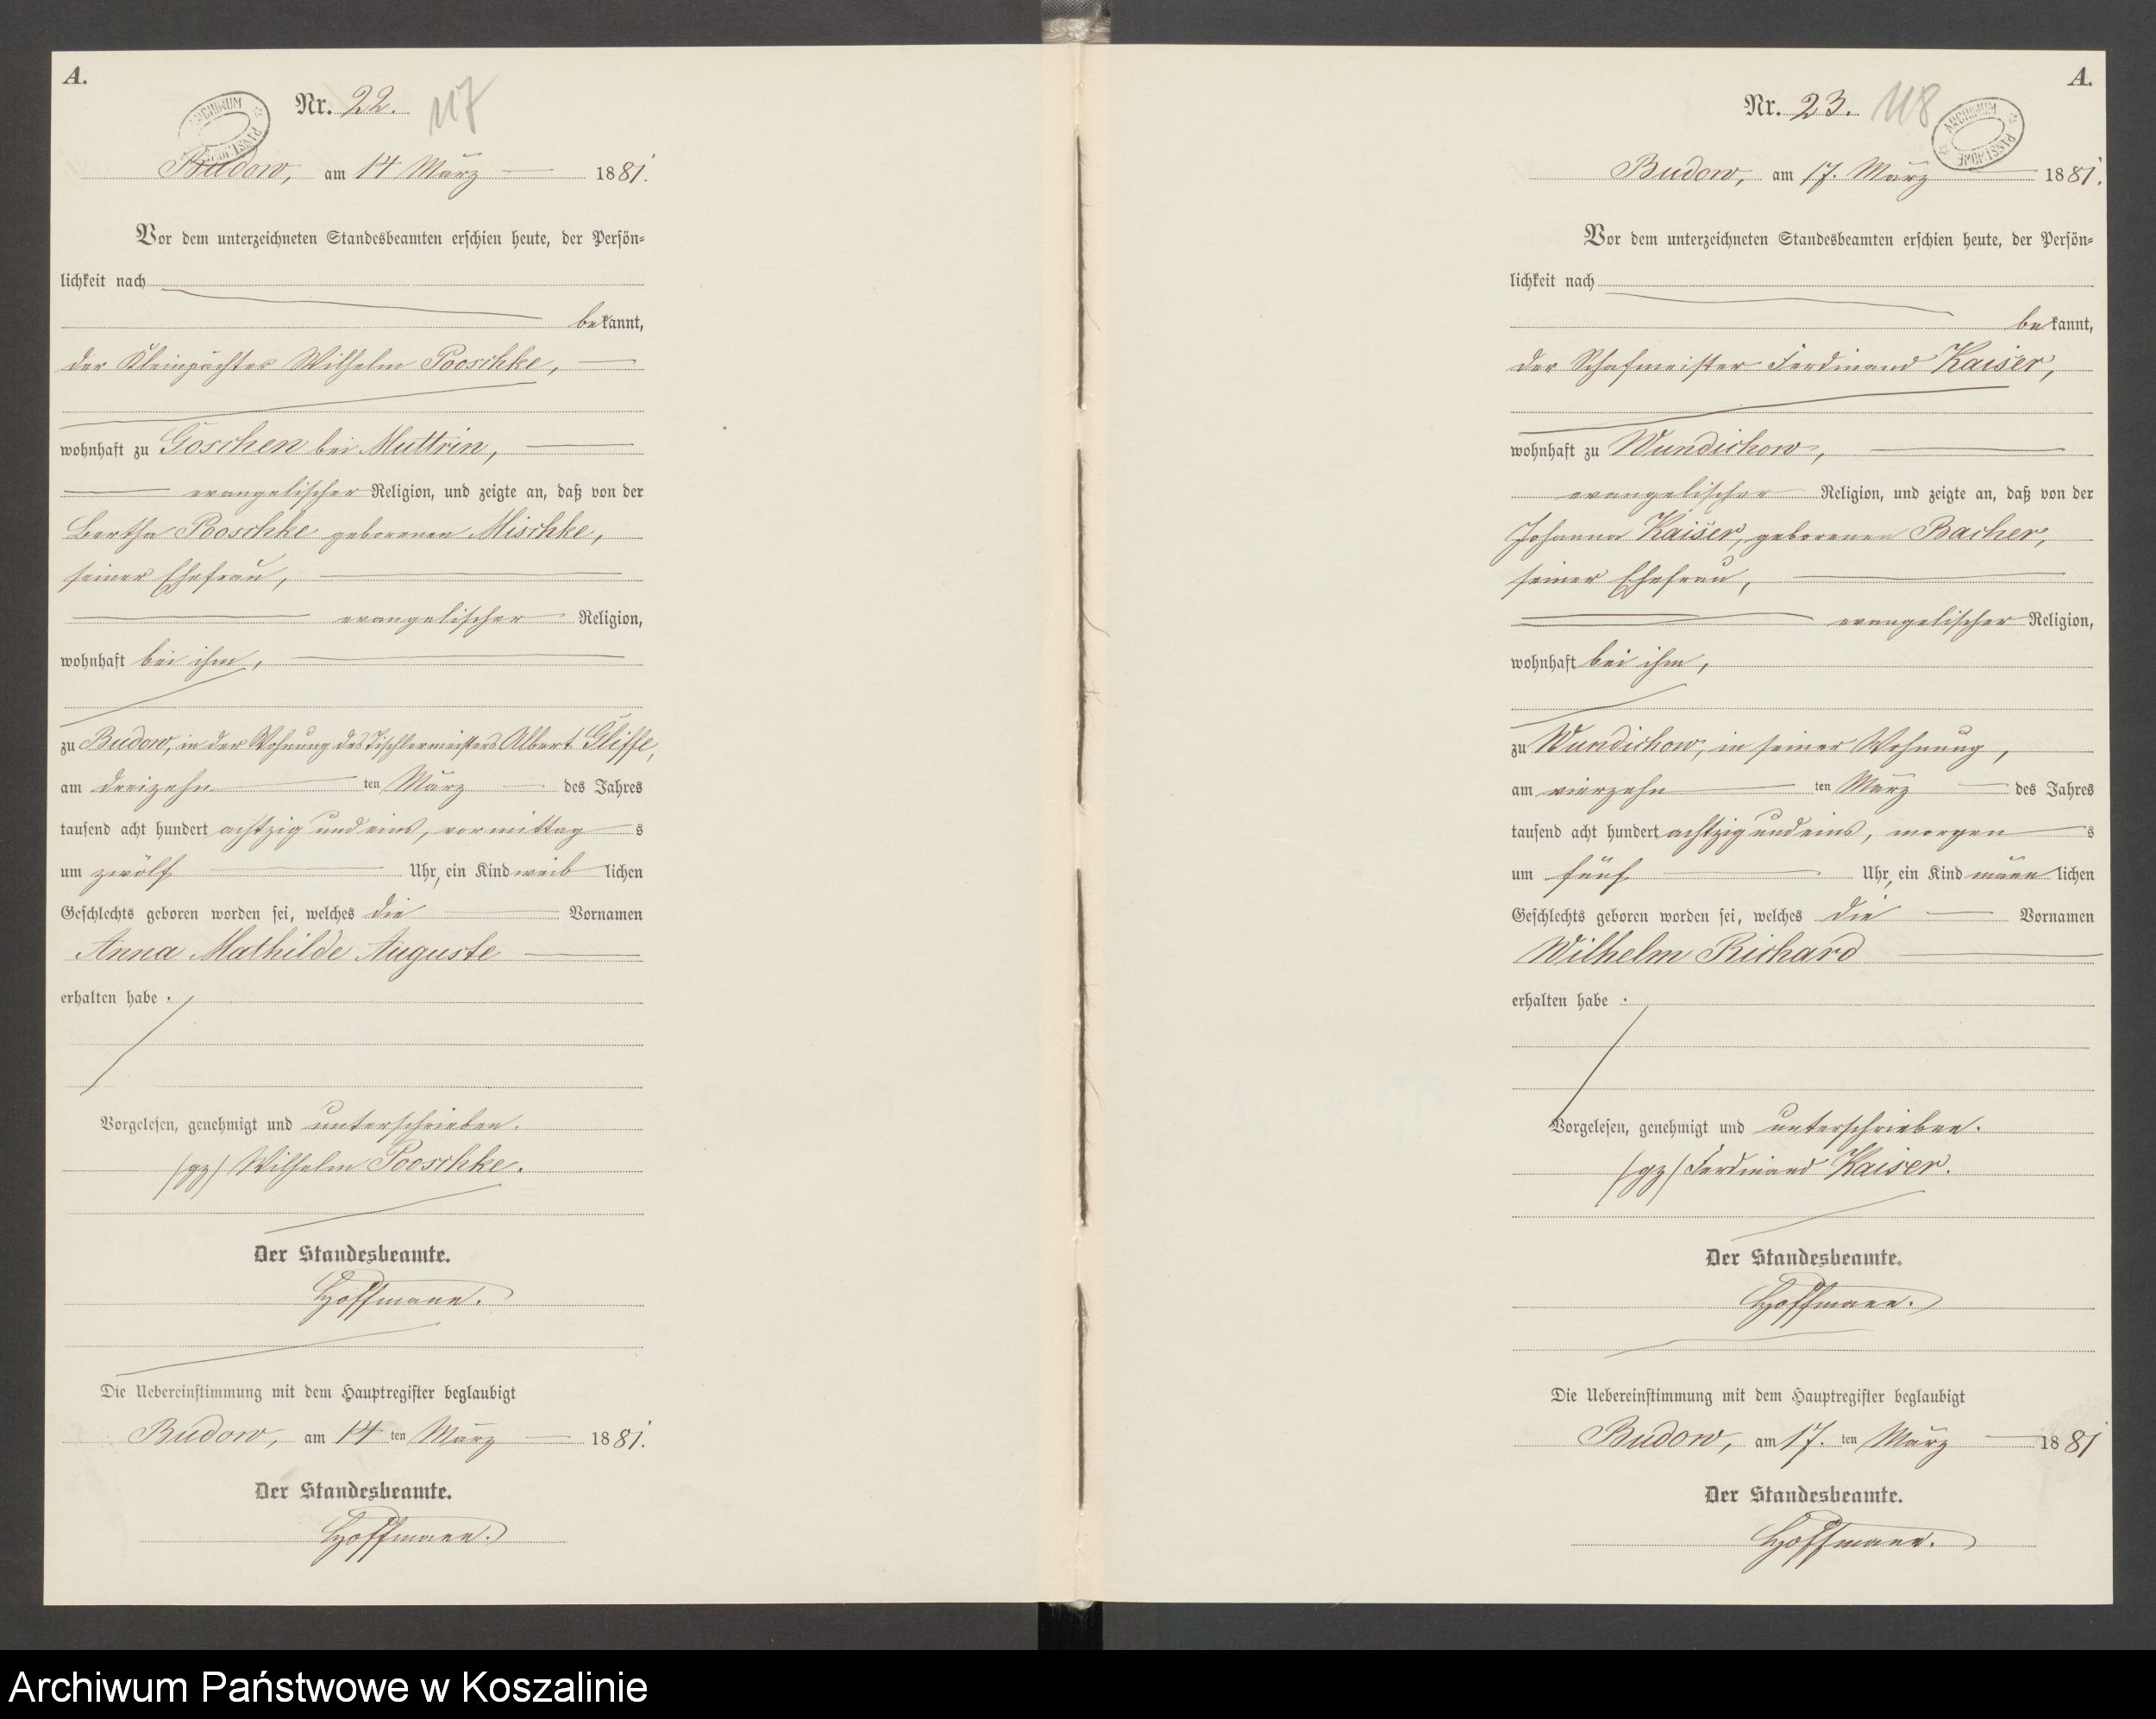 A.
Nr. 22. 117
ARCHIWUM PAŃSTWOWE
Budow, am 14 März 1881.
Vor dem unterzeichneten Standesbeamten erschien heute, der Persön-
lichkeit nach
bekannt,
der Kleinpächter Wilhelm Pooschke,
wohnhaft zu Goschen bei Muttrin,
evangelischer Religion, und zeigte an, daß von der
Bertha Pooschke geborenen Mischke,
seiner Ehefrau,
evangelischer Religion,
wohnhaft bei ihm,
zu Budow, in der Wohnung des Tischlermeisters Albert Gliffe,
am dreizehn ten März des Jahres
tausend acht hundert achtzig und eins, vormittag s
um zwölf Uhr, ein Kind weib lichen
Geschlechts geboren worden sei, welches die Vornamen
Anna Mathilde Auguste
erhalten habe.
Vorgelesen, genehmigt und unterschrieben.
(gz) Wilhelm Pooschke.
Der Standesbeamte.
Hoffmann.
Die Uebereinstimmung mit dem Hauptregister beglaubigt
Budow, am 14 ten März 1881.
Der Standesbeamte.
Hoffmann.
A.
Nr. 23. 118
ARCHIWUM PAŃSTWOWE
Budow, am 17. März 1881.
Vor dem unterzeichneten Standesbeamten erschien heute, der Persön-
lichkeit nach
bekannt,
der Schafmeister Ferdinand Kaiser,
wohnhaft zu Wundichow,
evangelischer Religion, und zeigte an, daß von der
Johanna Kaiser, geborenen Bacher,
seiner Ehefrau,
evangelischer Religion,
wohnhaft bei ihm,
zu Wundichow, in seiner Wohnung,
am vierzehn ten März des Jahres
tausend acht hundert achtzig und eins, morgen s
um fünf Uhr, ein Kind männ lichen
Geschlechts geboren worden sei, welches die Vornamen
Wilhelm Richard
erhalten habe.
Vorgelesen, genehmigt und unterschrieben.
(gz) Ferdinand Kaiser.
Der Standesbeamte.
Hoffmann.
Die Uebereinstimmung mit dem Hauptregister beglaubigt
Budow, am 17. ten März 1881
Der Standesbeamte.
Hoffmann.
Archiwum Państwowe w Koszalinie